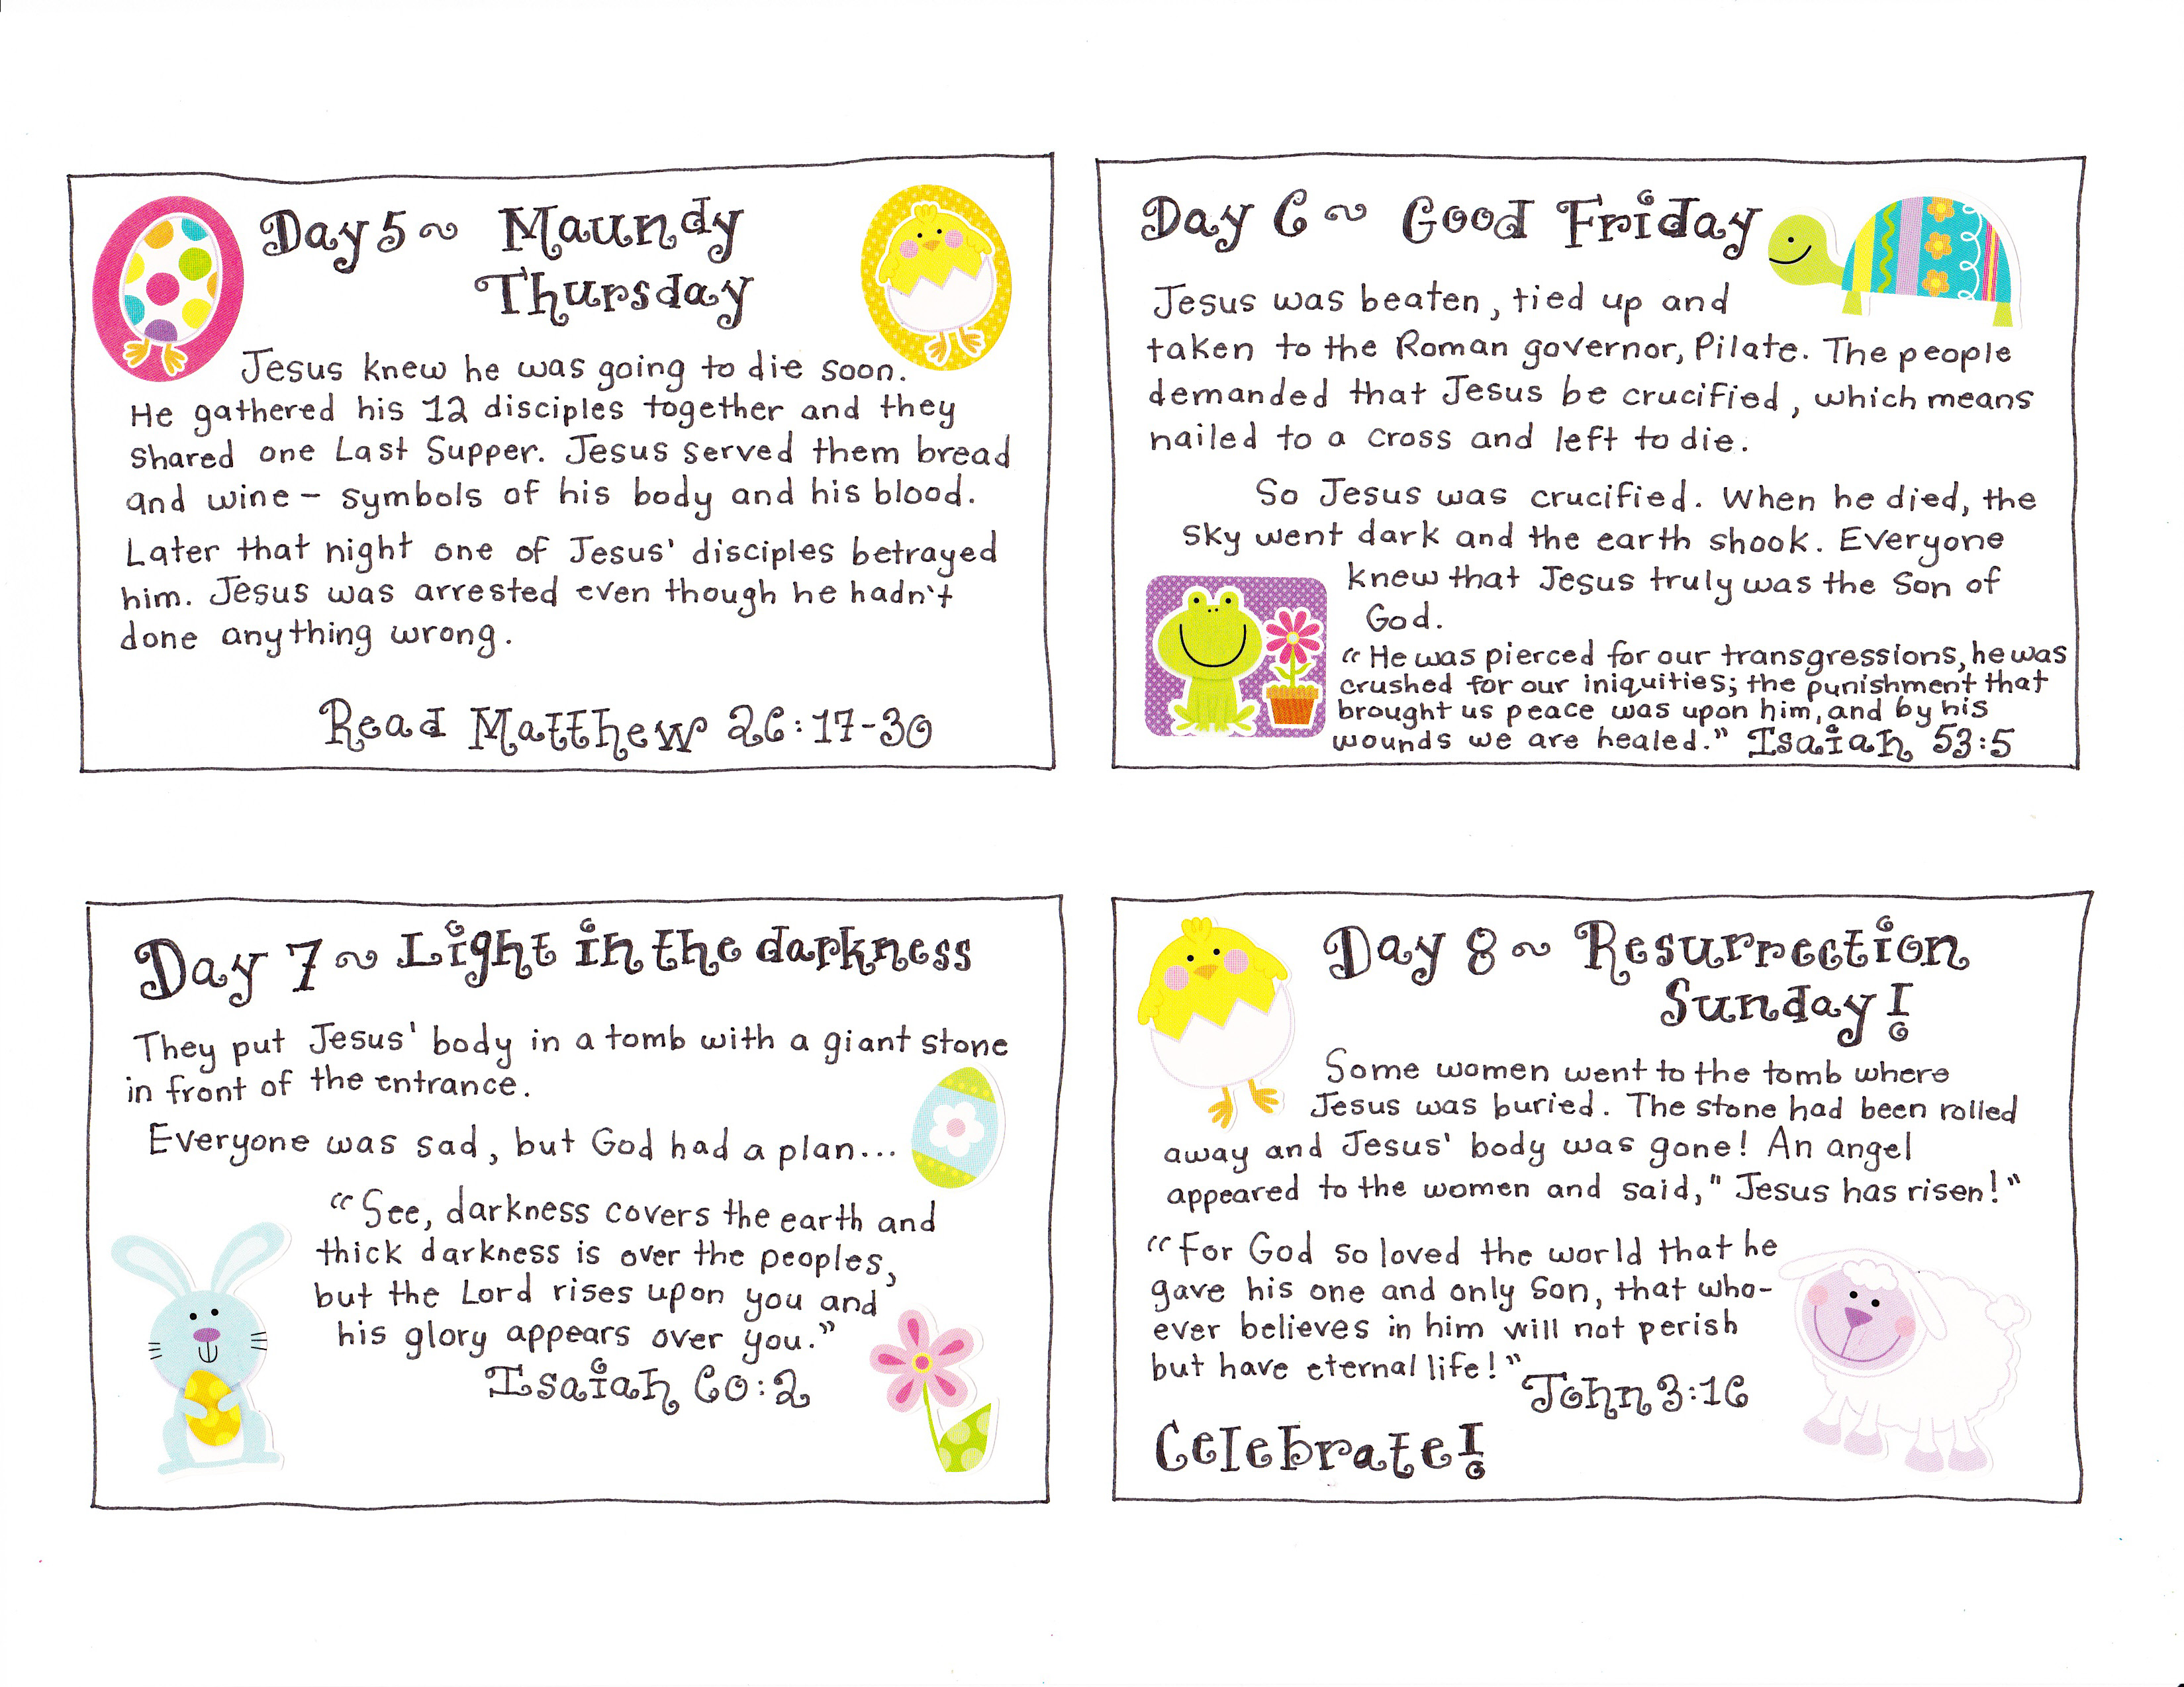 Day 5 ~ Maundy
Thursday
Jesus knew he was going to die soon.
He gathered his 12 disciples together and they
shared one Last Supper. Jesus served them bread
and wine - symbols of his body and his blood.
Later that night one of Jesus' disciples betrayed
him. Jesus was arrested even though he hadn't
done anything wrong.
Read Matthew 26:17-30
Day 6 ~ Good Friday
Jesus was beaten, tied up and
taken to the Roman governor, Pilate. The people
demanded that Jesus be crucified, which means
nailed to a cross and left to die.
So Jesus was crucified. When he died, the
sky went dark and the earth shook. Everyone
knew that Jesus truly was the Son of
God.
"He was pierced for our transgressions, he was
crushed for our iniquities; the punishment that
brought us peace was upon him, and by his
wounds we are healed." Isaiah 53:5
Day 7 ~ Light in the darkness
They put Jesus' body in a tomb with a giant stone
in front of the entrance.
Everyone was sad, but God had a plan...
"See, darkness covers the earth and
thick darkness is over the peoples,
but the Lord rises upon you and
his glory appears over you."
Isaiah 60:2
Day 8 ~ Resurrection
Sunday!
Some women went to the tomb where
Jesus was buried. The stone had been rolled
away and Jesus' body was gone! An angel
appeared to the women and said, "Jesus has risen!"
"For God so loved the world that he
gave his one and only Son, that who-
ever believes in him will not perish
but have eternal life!"
John 3:16
Celebrate!